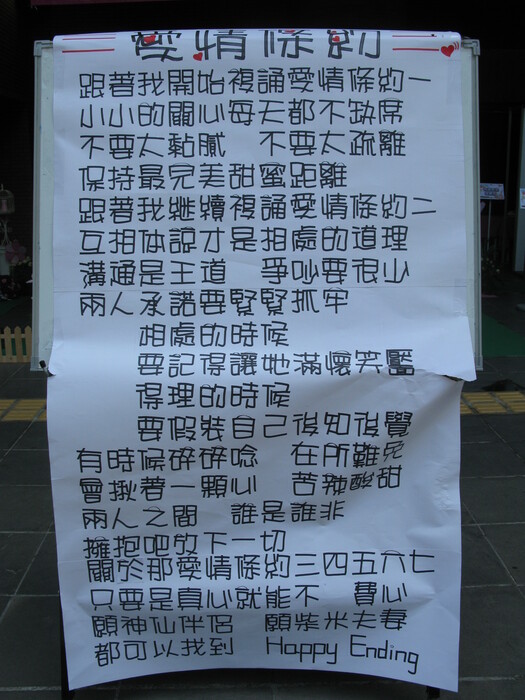 愛情條約
跟著我開始複誦愛情條約一
小小的關心每天都不缺席
不要太黏膩 不要太疏離
保持最完美甜蜜距離
跟著我繼續複誦愛情條約二
互相体諒才是相處的道理
溝通是王道 爭吵要很少
兩人承諾要緊緊抓牢
相處的時候
要記得讓她滿懷笑靨
得理的時候
要假裝自己後知後覺
有時候碎碎唸 在所難免
會揪著一顆心 苦辣酸甜
兩人之間 誰是誰非
擁抱吧放下一切
關於那愛情條約三四五六七
只要是真心就能不 費心
願神仙伴侶 願柴米夫妻
都可以找到 Happy Ending